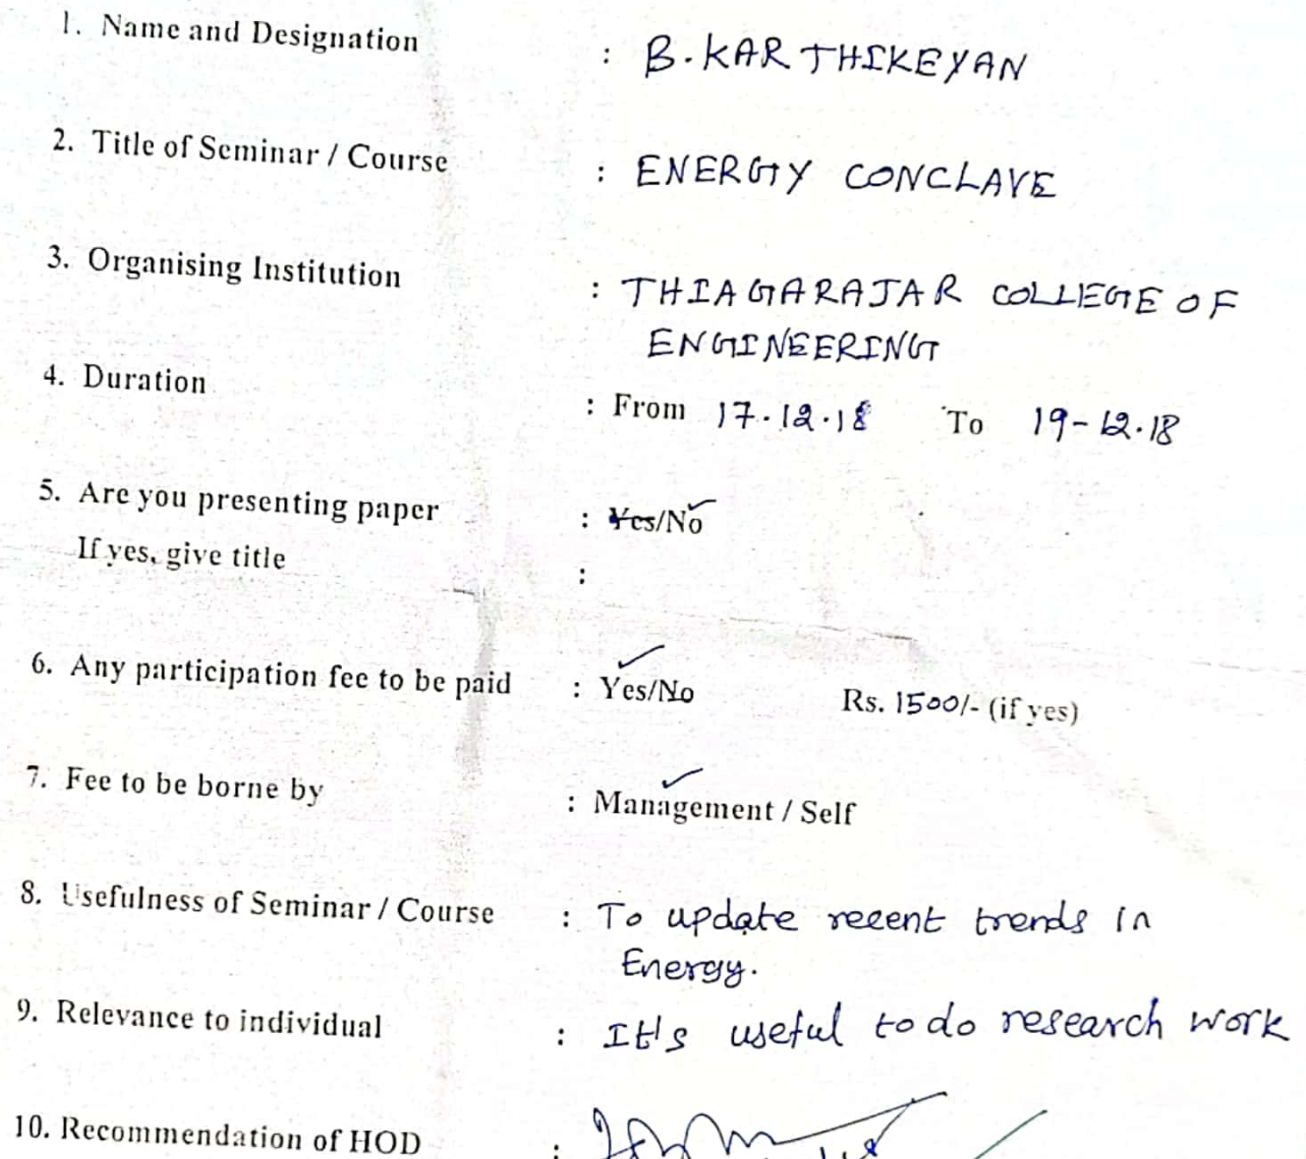 1. Name and Designation : B. KARTHIKEYAN
2. Title of Seminar / Course : ENERGY CONCLAVE
3. Organising Institution : THIAGARAJAR COLLEGE OF
ENGINEERING
4. Duration : From 17.12.18 To 19-12.18
5. Are you presenting paper : Yes/No
If yes, give title :
6. Any participation fee to be paid : Yes/No Rs. 1500/- (if yes)
7. Fee to be borne by : Management / Self
8. Usefulness of Seminar / Course : To update recent trends in
Energy.
9. Relevance to individual : It's useful to do research work
10. Recommendation of HOD :